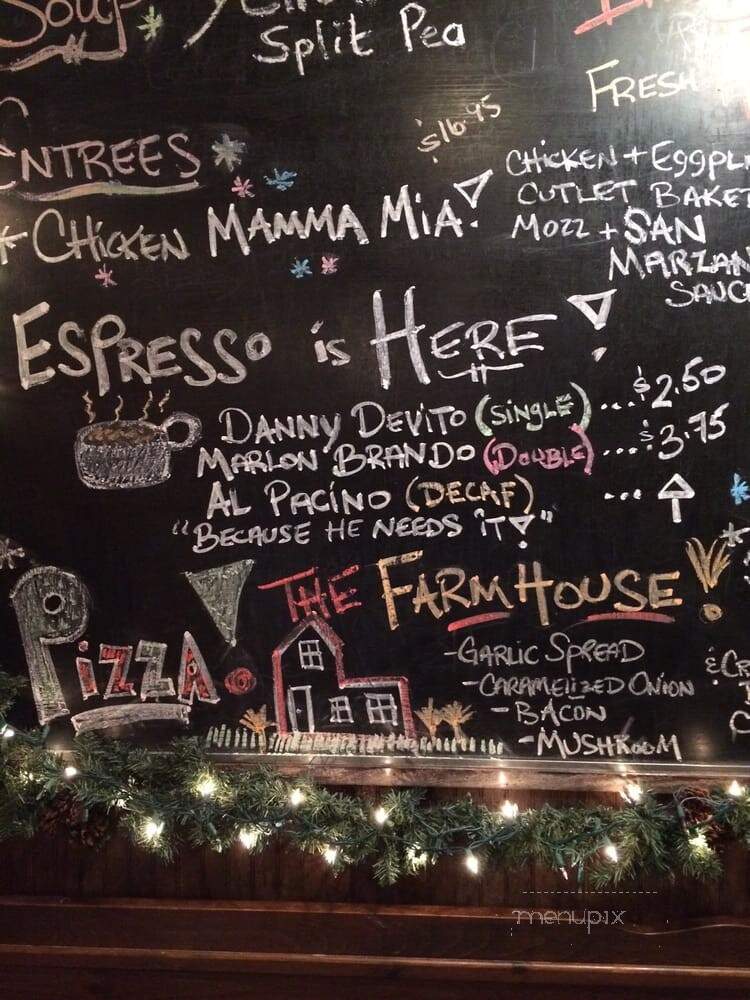 Soup
Split Pea
FRESH
ENTREES
$16.95
*CHICKEN MAMMA MIA!
CHICKEN + EGGPL
CUTLET BAKE
MOZZ + SAN
MARZAN
SAUC
ESPRESSO is HERE!
DANNY DEVITO (SINGLE) ... $2.50
MARLON BRANDO (DOUBLE) ... $3.75
AL PACINO (DECAF) ... ↑
"BECAUSE HE NEEDS IT!"
PIZZA!
THE FARMHOUSE!
-GARLIC SPREAD
-CARAMELIZED ONION
-BACON
-MUSHROOM
menupix